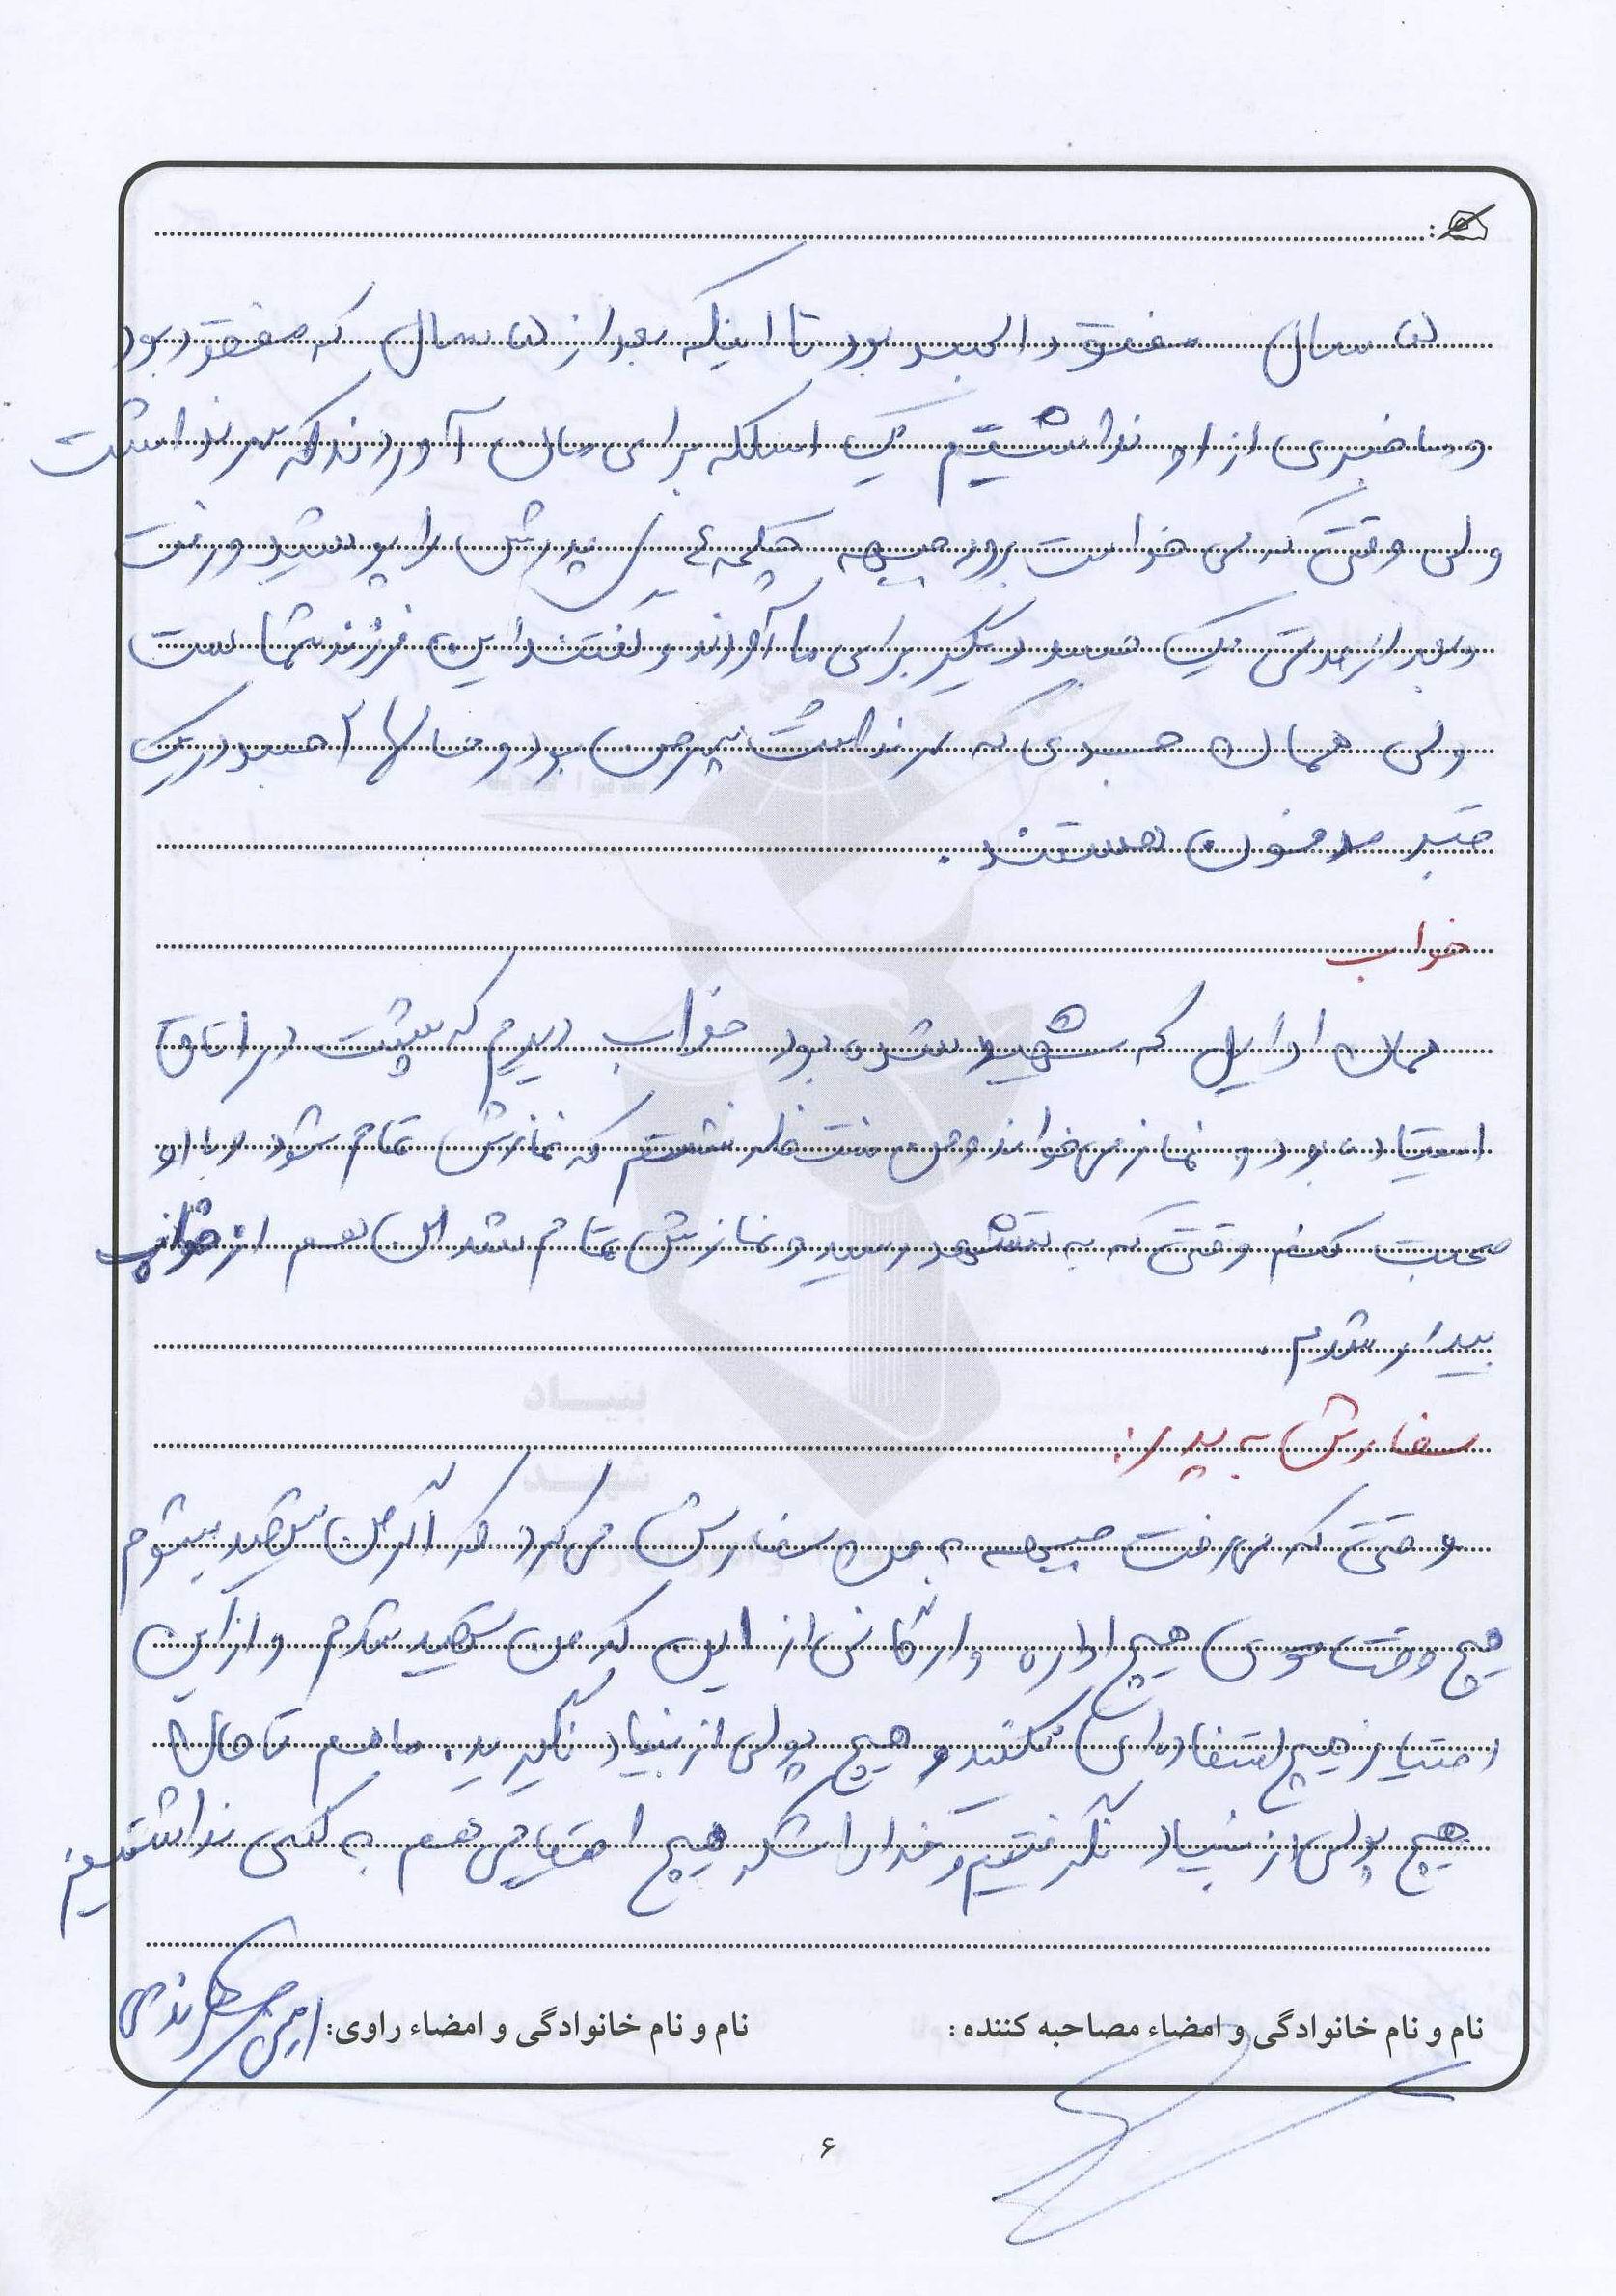 ۵ سال مفقود الجسد بود تا اینکه بعد از ۵ سال که مفقود بود
و ما خبری از او نداشتیم یک اسکلت برای مان آوردند که سر نداشت
ولی وقتی که می خواست برود جبهه چکمه ی پدرش را پوشید و رفت
و بعد از مدتی یک جسد دیگر برای ما آوردند و گفتند این فرزند شما است
ولی همان جسدی که سر نداشت پسر من بود و حالا ۲ جسد در یک
قبر مدفون هستند .
خواب
همان اوایل که شهید شده بود خواب دیدم که پشت در اتاق
ایستاده بود و نماز می خواند و من منتظر نشستم که نمازش تمام شود و با او
صحبت کنم وقتی که به تشهد رسید و نمازش تمام شد من هم از خواب
بیدار شدم .
سفارش به پدر :
وقتی که می رفت جبهه به من سفارش می کرد که اگر من شهید بشوم
هیچ وقت سوی هیچ اداره و ارگانی از این که من شهید شدم و از این
امتیاز هیچ استفاده ای نکنید و هیچ پولی از بنیاد نگیرید . ما هم تا حالا
هیچ پولی از بنیاد نگرفتیم و خدا را شکر هیچ احتیاجی هم به کسی نداشتیم
نام و نام خانوادگی و امضاء مصاحبه کننده : نام و نام خانوادگی و امضاء راوی:
۶
بنیاد
شهید